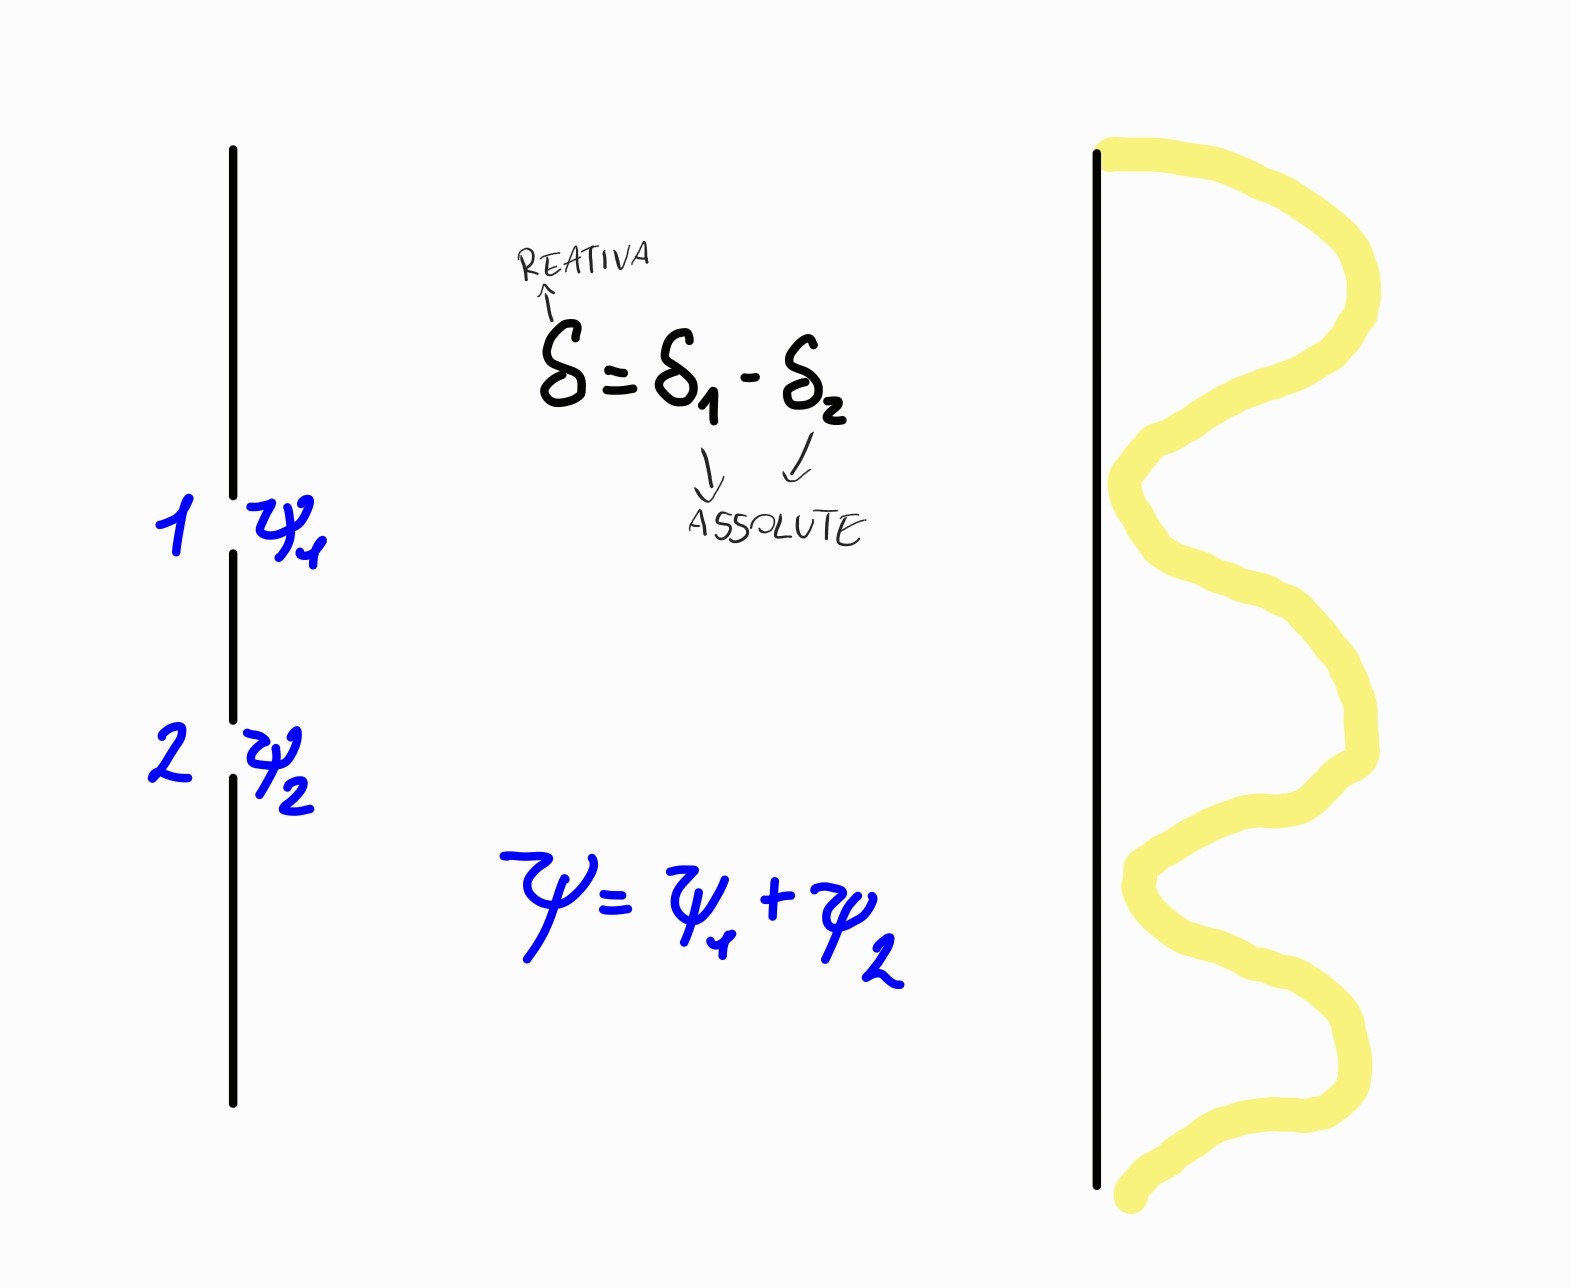 REATIVA
δ = δ₁ - δ₂
ASSOLUTE
1 ψ₁
2 ψ₂
ψ = ψ₁ + ψ₂